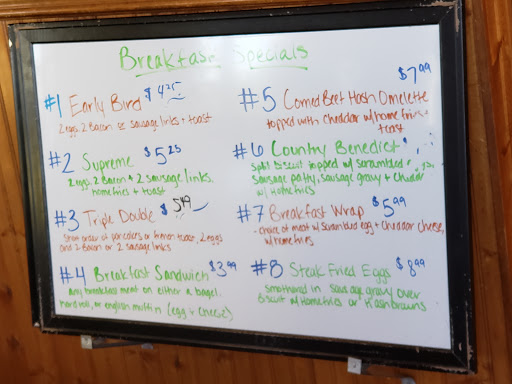 Breakfast Specials
#1 Early Bird $4.25
2 eggs, 2 Bacon or sausage links + toast
#2 Supreme $5.25
2 eggs, 2 Bacon + 2 sausage links.
homefries + toast
#3 Triple Double $5.49
Short order of pancakes or french toast, 2 eggs
and 2 Bacon or 2 sausage links
#4 Breakfast Sandwich $3.99
Any breakfast meat on either a bagel,
hard roll, or english muffin (egg + cheese)
$7.99
#5 Corned Beef Hash Omelette
topped with cheddar w/ home fries +
toast
#6 Country Benedict
Split biscuit topped w/ scrambled
Sausage patty, sausage gravy + cheddar
w/ Homefries
#7 Breakfast Wrap $5.99
- choice of meat w/ scrambled egg + cheddar cheese,
w/ homefries
#8 Steak Fried Eggs $8.99
Smothered in sausage gravy over
Biscuit w/ Homefries or Hashbrowns